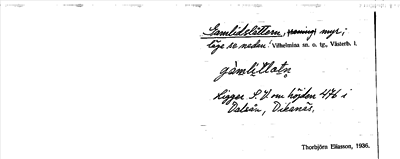 Gamlidslåttern, myr;
läge se nedan! Vilhelmina sn. o. tg., Västerb. l.
gàmlitlatn̥
Ligger S.V. om höjden 476 i
Dalsån, Dikanäs.
Thorbjörn Eliasson, 1936.